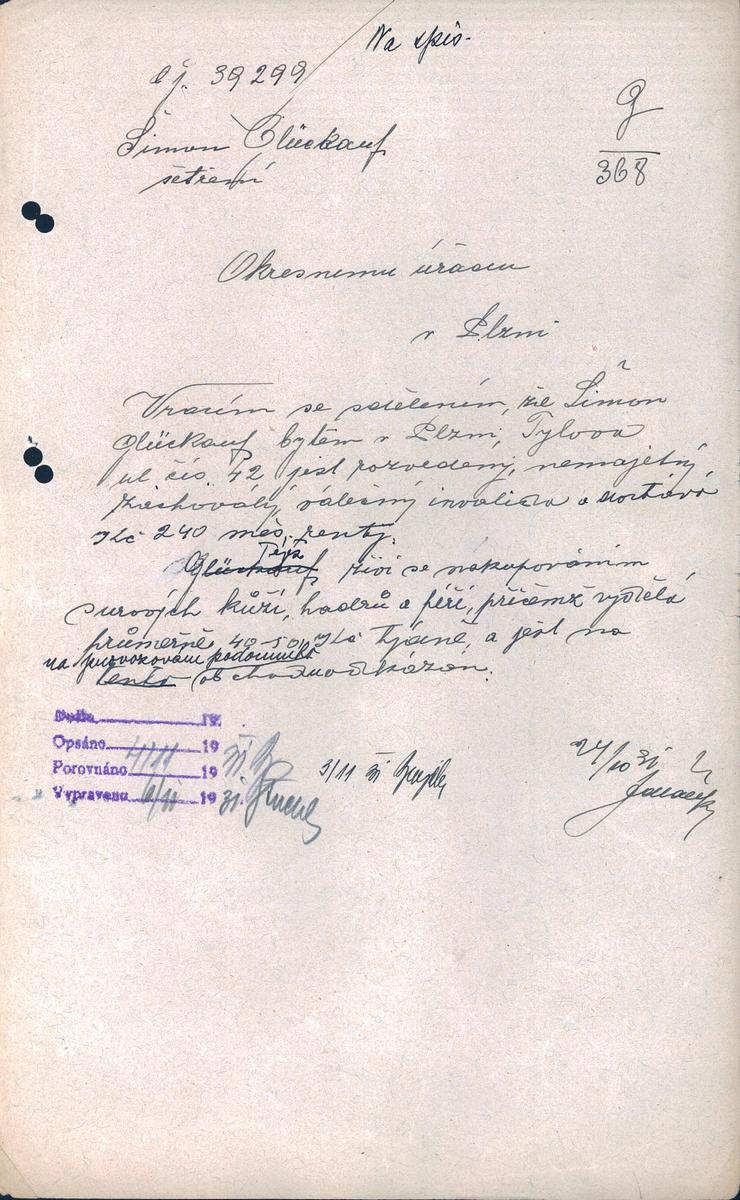 Na spis.
čj. 39299
G
368
Šimon Glückauf
šetření
Okresnemu úřadu
v Plzni
Vracím se sdělením, že Šimon
Glückauf bytem v Plzni, Tylova
ul čís. 42, jest rozvedený, nemajetný,
zachovalý, válečný invalida a dostává
Kč 240 měs. renty.
Glückauf Týž živí se nakupováním
surových kůží, hadrů a peří, přičemž vydělá
průměrně 40-50 Kč týdně, a jest na
na provozování podomního
tento obchod odkázán.
Došlo 19
Opsáno 4/11 19 31
Porovnáno 19
Vypraveno 6/11 19 31
3/11 31
24/10 31